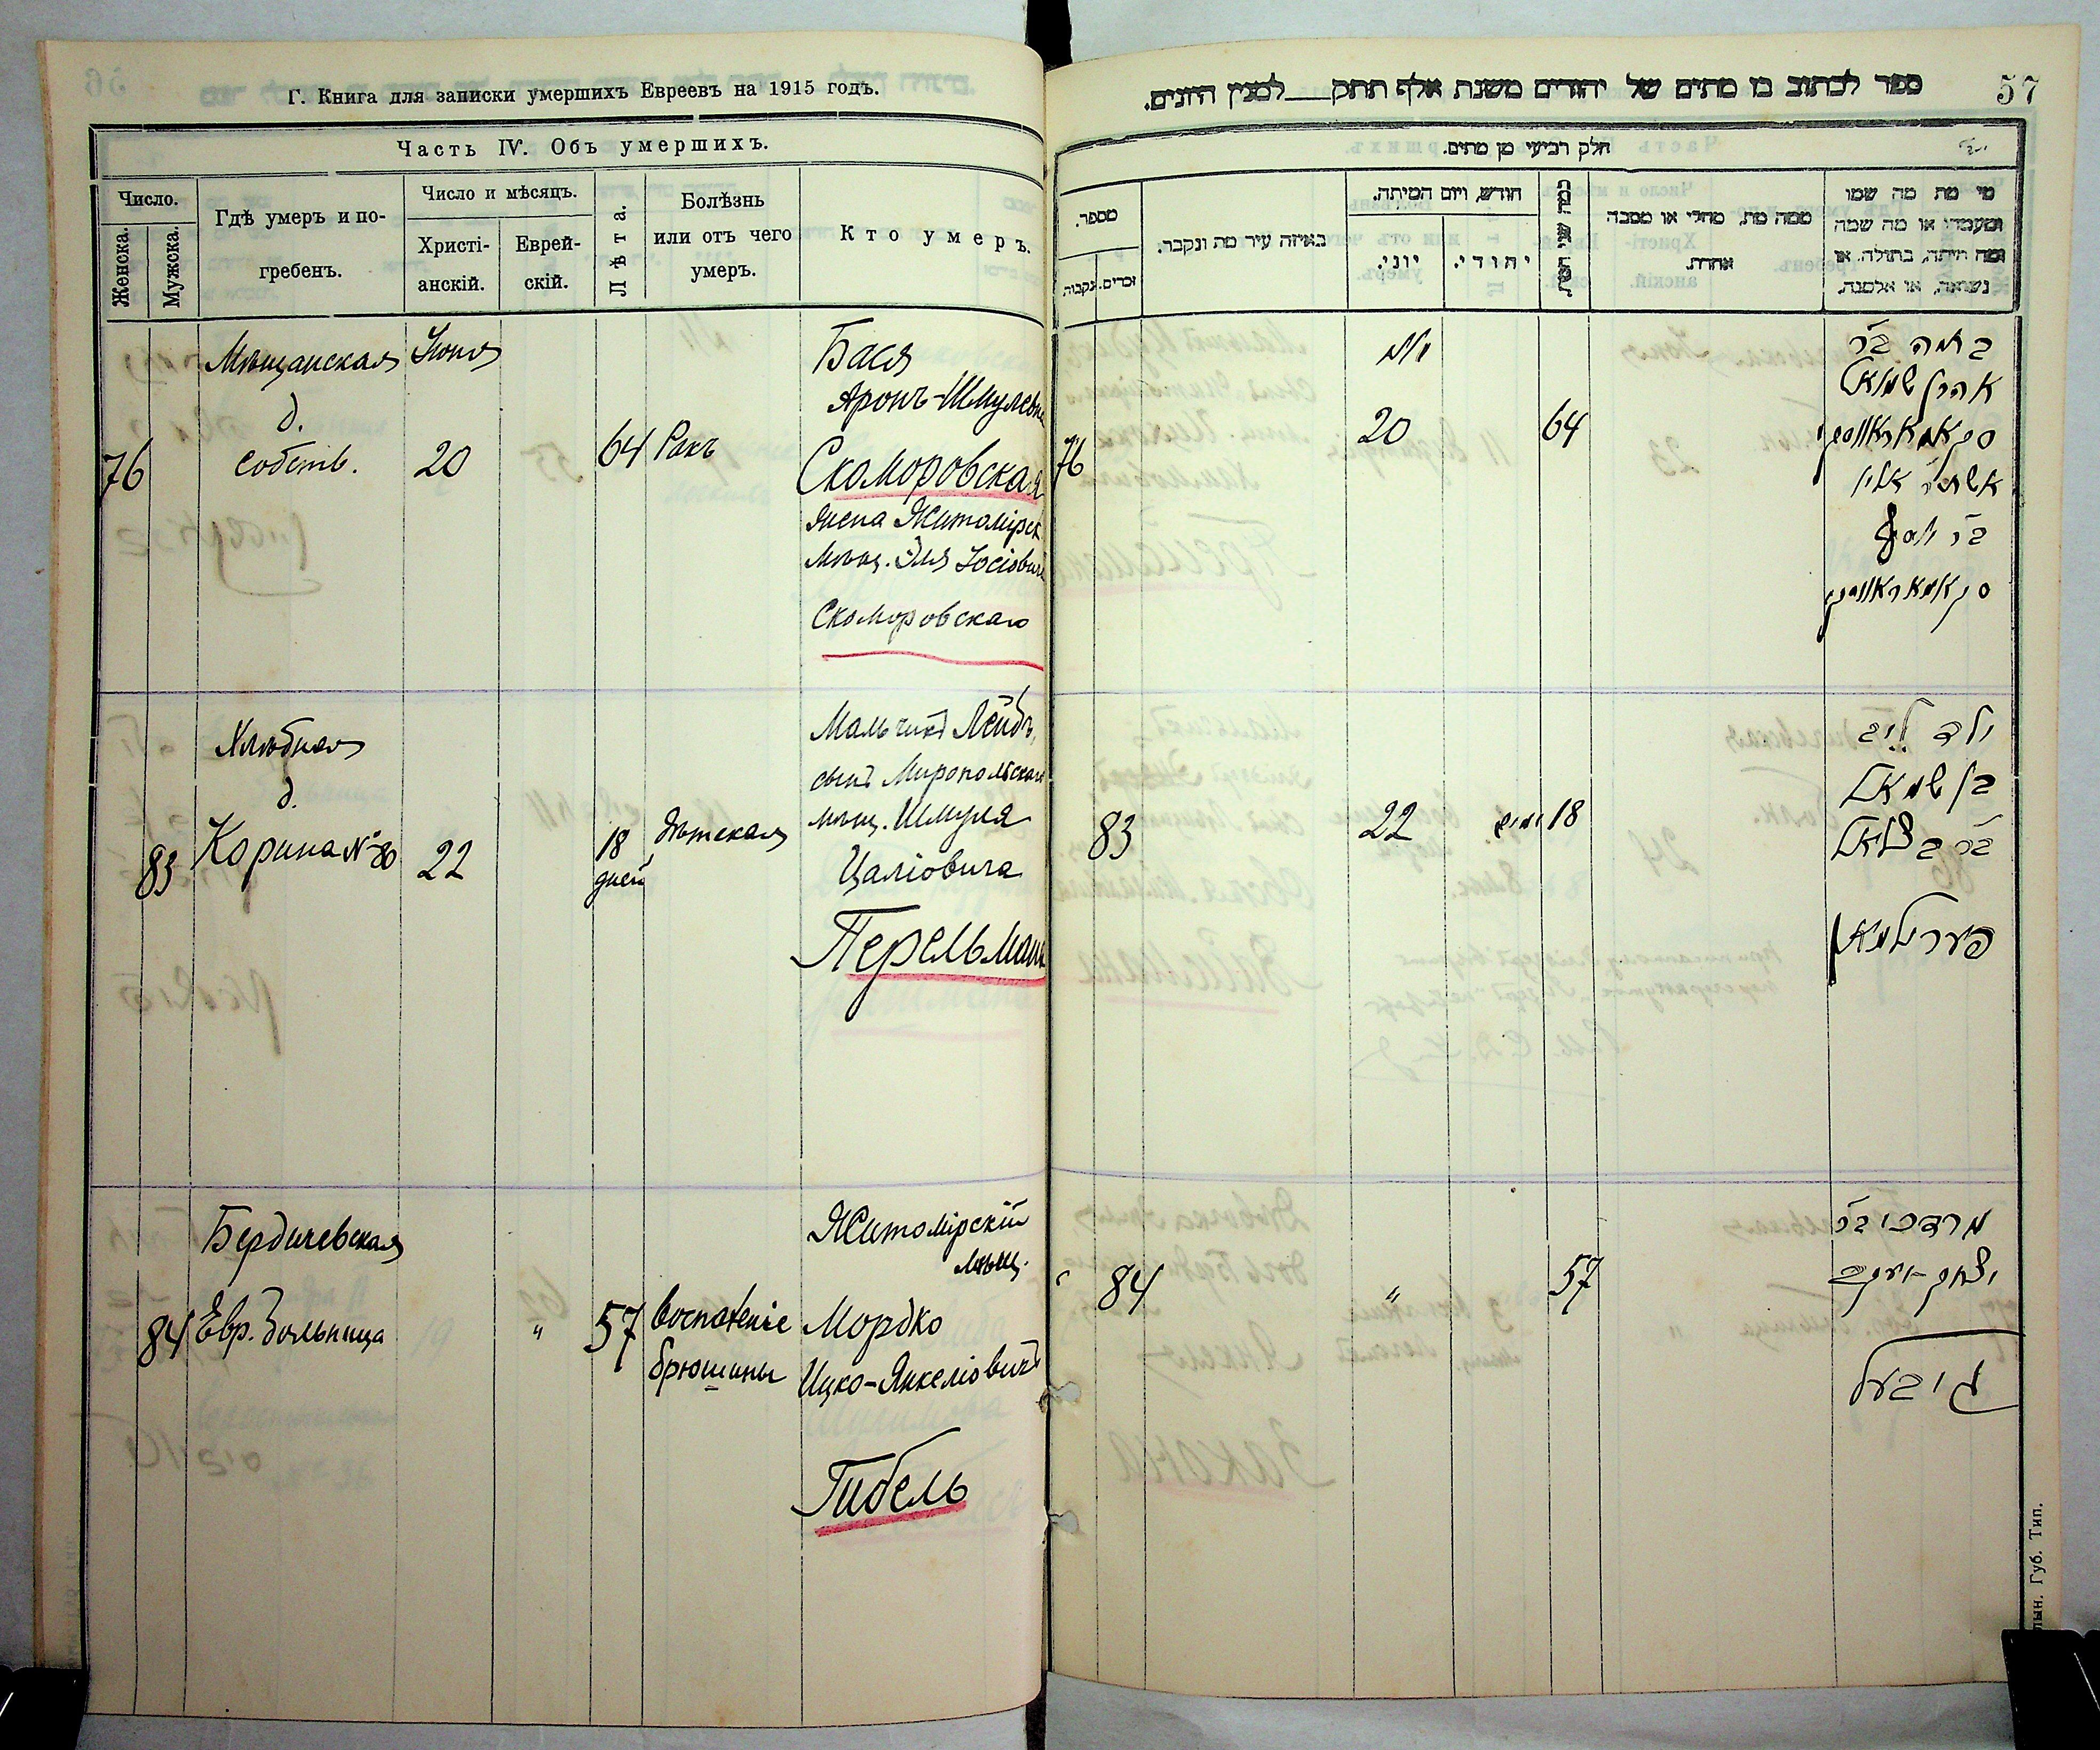 Г. Книга для записки умершихъ Евреевъ на 1915 годъ.
Часть IV. Объ умершихъ.
Число.
Женска.
Мужска.
Гдѣ умеръ и по-
гребенъ.
Число и мѣсяцъ.
Христі-
анскій.
Еврей-
скій.
Лѣта.
Болѣзнь
или отъ чего
умеръ.
Кто умеръ.
76
Мѣщанская
д.
собств.
Іюня
20
64
Ракъ
Бася
Аронъ-Шмулевна
Скоморовская
жена Житомірск
мѣщ. Эля Іосіовича
Скоморовскаго
83
Хлѣбная
д.
Корина № 80
22
18
дней
Дѣтская
Мальчикъ Лейбъ,
сынъ Миропольскаго
мѣщ. Шмуля
Цаліовича
Перельманъ
84
Бердичевская
Евр. больница
"
57
Воспаленіе
брюшины
Житомірскій
мѣщ.
Мордко
Ицко-Янкеліовичъ
Гибель
57
ספר לכתוב בו מתים של יהודים משנת אלף תתק למנין היונים.
חלק רביעי מן מתים.
מספר.
נקבות.
זכרים.
באיזה עיר מת ונקבר.
חודש, ויום המיתה.
יוני.
יהודי.
ממה מת, מחלי או מסבה
אחרת.
מי מת מה שמו
ומעמדו או מה שמה
ומה היתה, בתולה, או
נשואה, או אלמנה.
76
יוני
20
64
באסיע בר
אהרן שמואל
סקאמאראווסקי
אשת ר' אלי'
בר יוסף
סקאמאראווסקי
83
22
ימים 18
ילד ליב
בן שמואל
בר בצלאל
פערילמאן
84
"
57
מרדכי בר
יצחק-יעקב
גיבעל
лын. Губ. Тип.